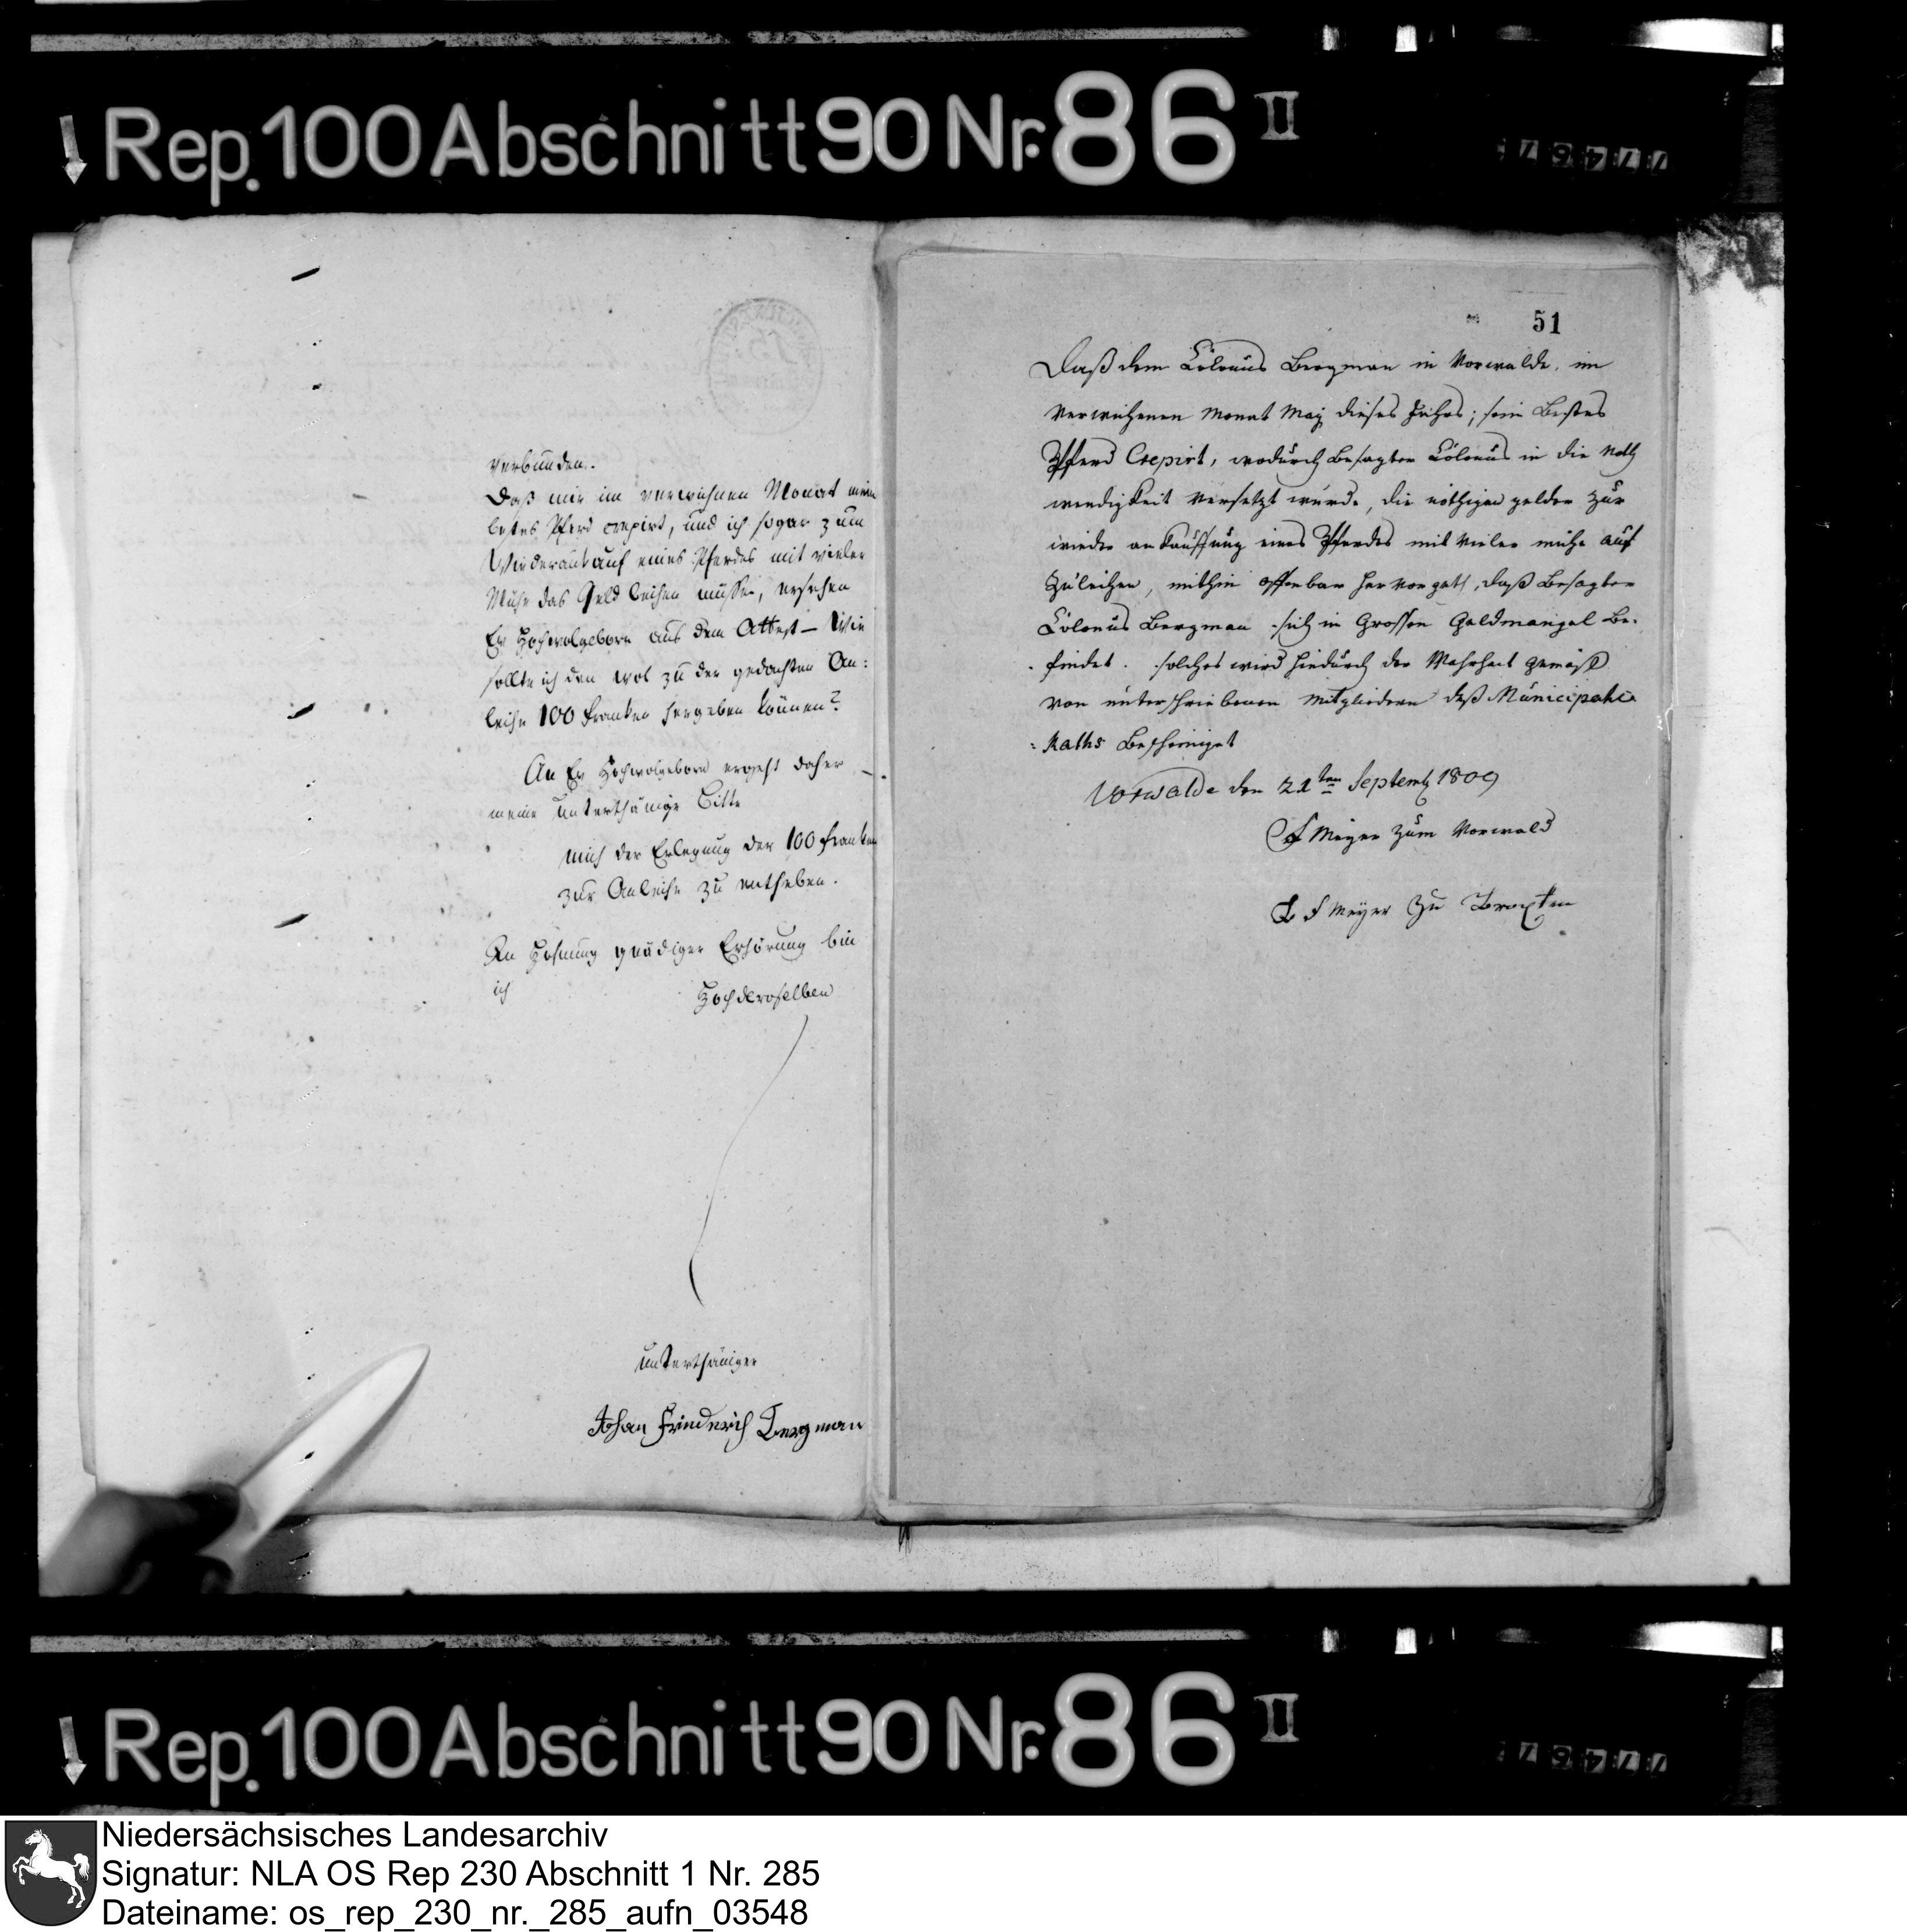 Rep. 100 Abschnitt 90 Nr. 86 II
verbunden.
Daß mir im verwichnen Monat mein
bestes Pferd crepirt, und ich sogar zum
Wiederankauf eines Pferdes mit vieler
Mühe das Geld leihen müssen, ersehen
Ew Hochwolgeborn aus dem Attest – Wie
sollte ich den wol zu der gedachten An:
leihe 100 Franken hergeben können?
An Ew Hochwolgeborn ergeht daher
meine unterthänige Bitte
mich der Erlegung der 100 Franken
zur Anleihe zu entheben.
In Hofnung gnädiger Erhörung bin
ich Hochderoselben
unterthäniger
Johan Friederich Bergman
51
Daß dem Colonus Bergman in Vorwalde, im
verwichenen Monat Maj dieses Jahres; sein Bestes
Pferd Crepirt, wodurch besagter Colonus in die Noth
wendigkeit versetzt wurde, die nöthigen gelder zur
wieder ankauffung eines Pferdes mit vieler mühe auf
zuleihen, mithin offenbar hervorgeth, daß besagter
Colonus Bergman sich in Grossen Geldmangel be.
findet. solches wird hiedurch der Wahrheit gemäß
von unterschriebenen Mitgliedern deß Municipahl
: Raths bescheiniget
Vorwalde den 21ten Septemb 1809
Meyer zum Vorwald
Meyer zu
Rep. 100 Abschnitt 90 Nr. 86 II
Niedersächsisches Landesarchiv
Signatur: NLA OS Rep 230 Abschnitt 1 Nr. 285
Dateiname: os_rep_230_nr._285_aufn_03548